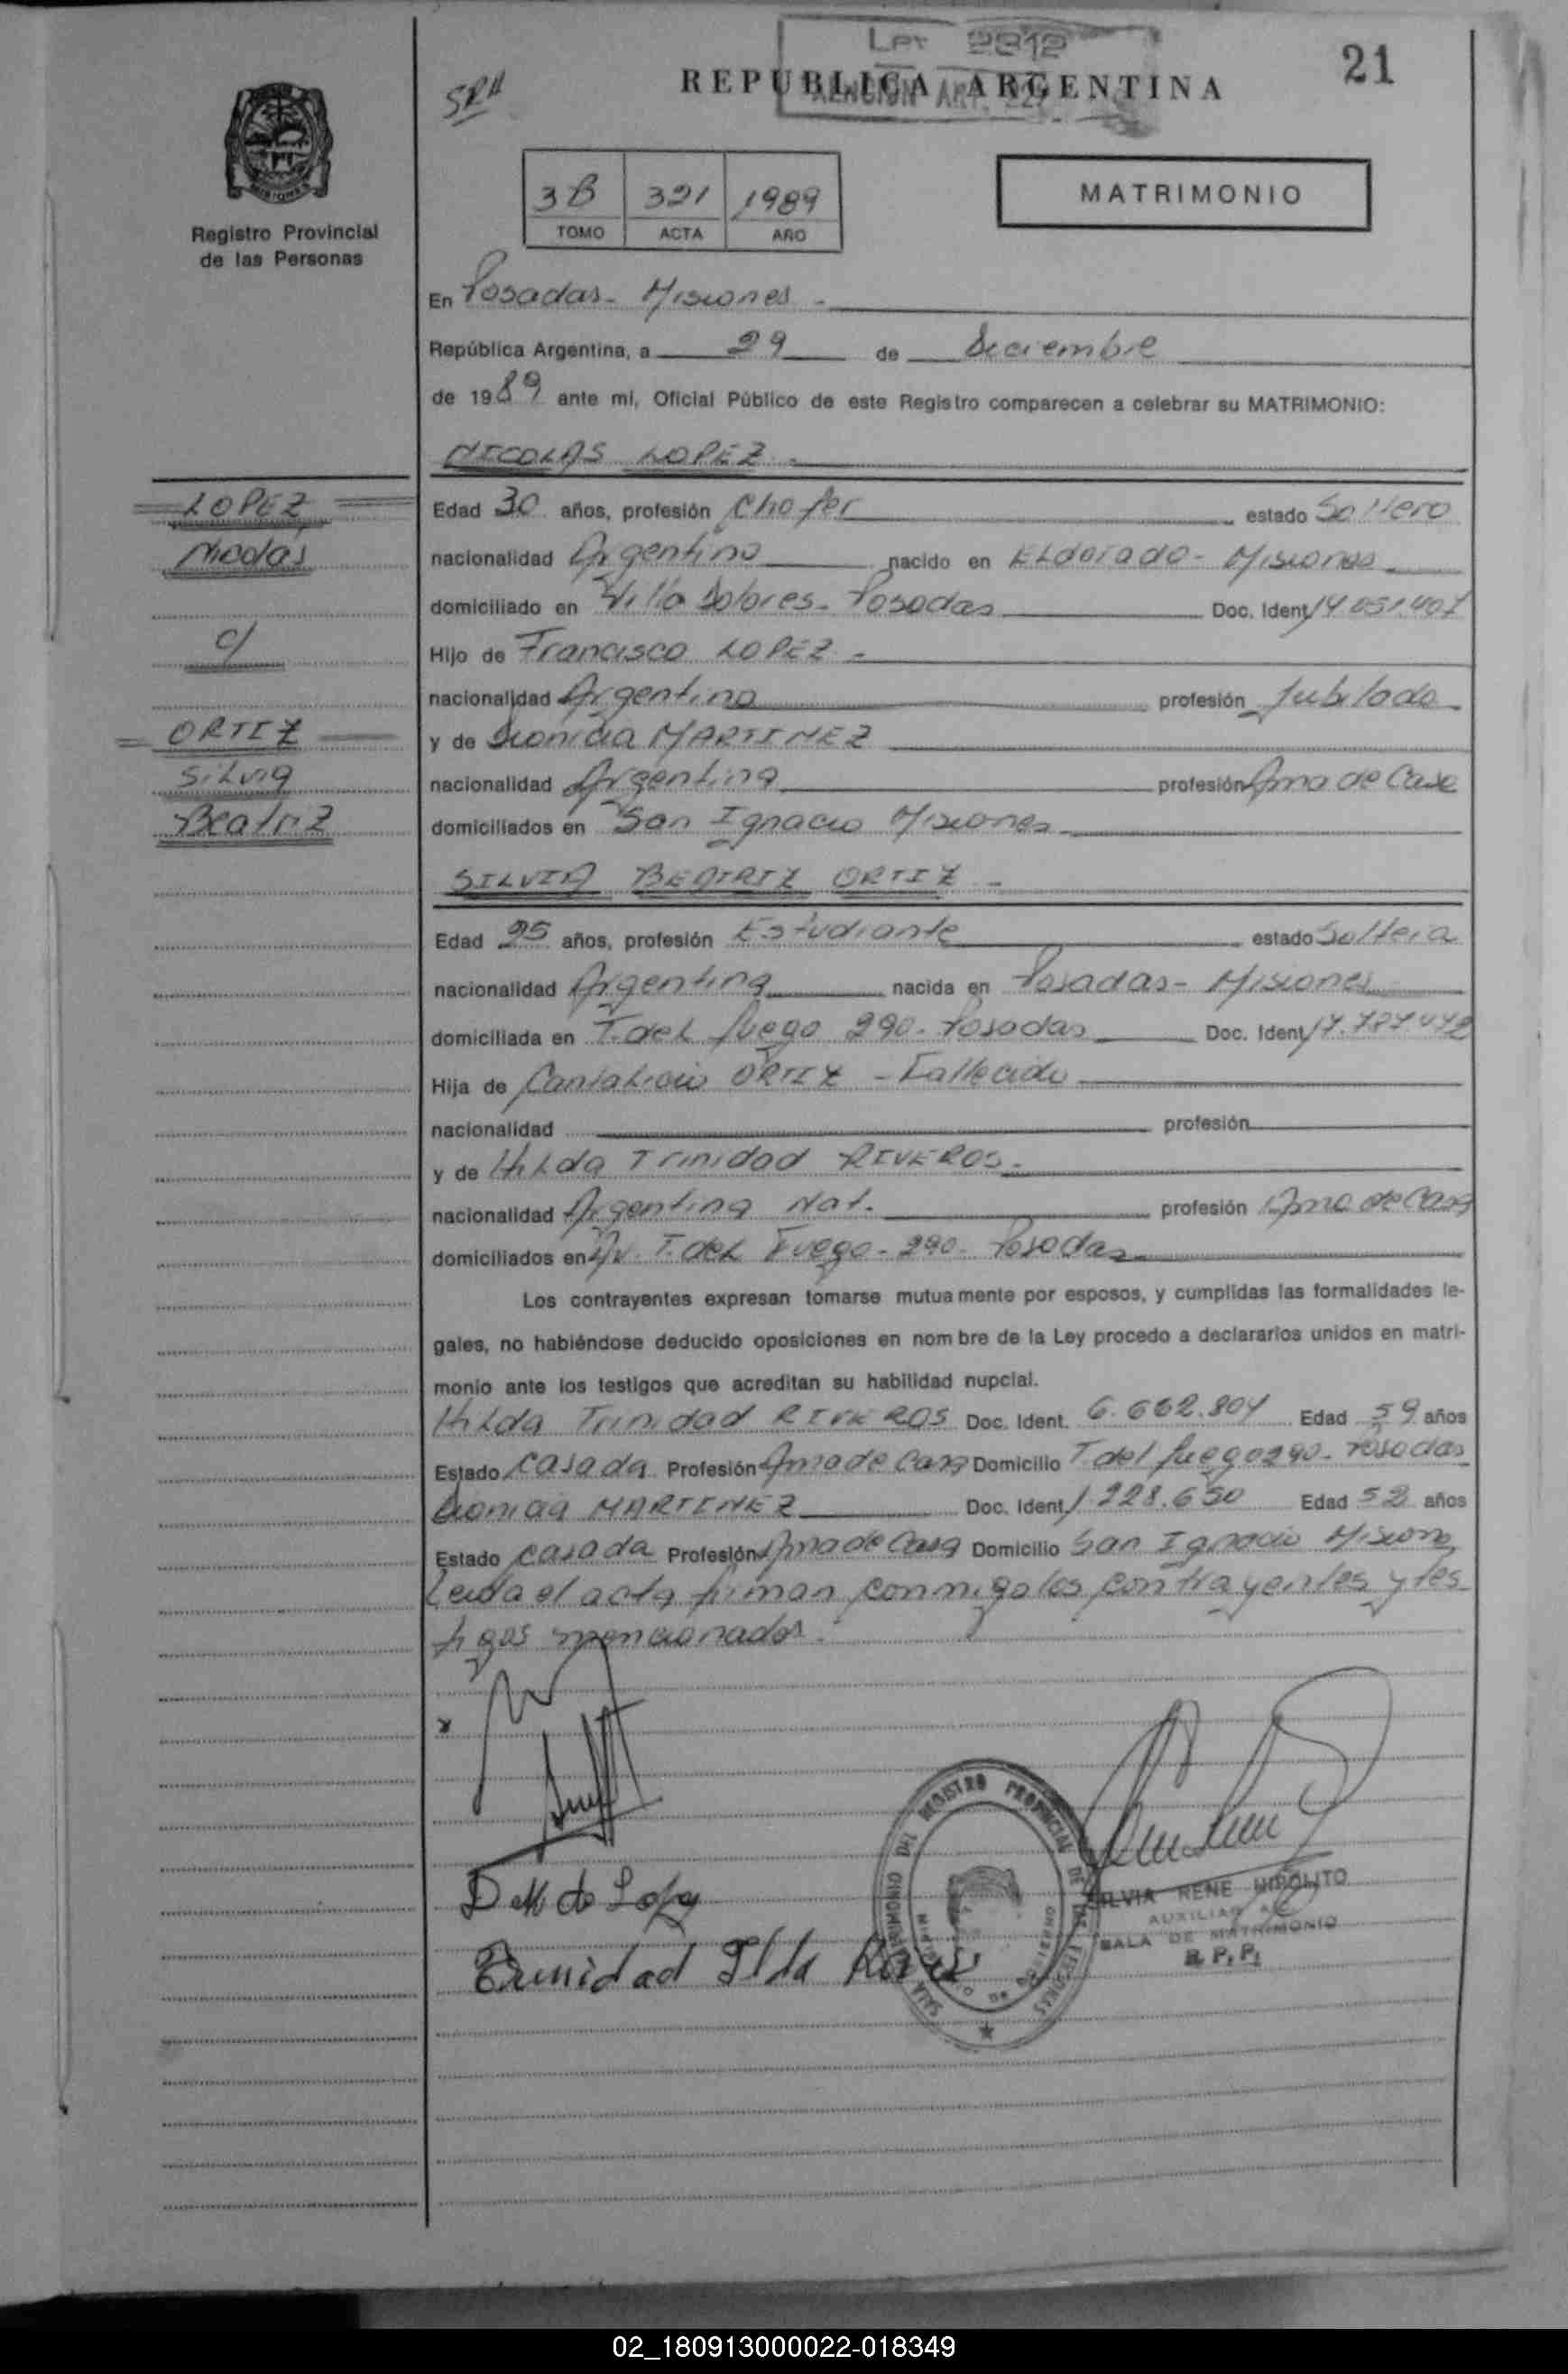 Ley 2812
ATENCION ART. 227
21
SRH
REPUBLICA ARGENTINA
3B 321 1989
TOMO ACTA AÑO
MATRIMONIO
MISIONES
Registro Provincial
de las Personas
En Posadas - Misiones -
República Argentina, a 29 de Diciembre
de 1989 ante mi, Oficial Público de este Registro comparecen a celebrar su MATRIMONIO:
NICOLAS LOPEZ -
LOPEZ
Nicolás
c/
ORTIZ
Silvia
Beatriz
Edad 30 años, profesión Chofer estado Soltero
nacionalidad Argentino nacido en ELdorado - Misiones
domiciliado en Villa Dolores - Posadas Doc. Ident 14.051.407
Hijo de Francisco LOPEZ -
nacionalidad Argentino profesión Jubilado
y de Dionicia MARTINEZ
nacionalidad Argentina profesión Ama de Casa
domiciliados en San Ignacio Misiones
SILVIA BEATRIZ ORTIZ -
Edad 25 años, profesión Estudiante estado Soltera
nacionalidad Argentina nacida en Posadas - Misiones
domiciliada en T. deL fuego 290 - Posadas Doc. Ident 17.787.042
Hija de Cantalicio ORTIZ - Fallecido
nacionalidad profesión
y de HiLda Trinidad RIVEROS -
nacionalidad Argentina Nat. profesión Ama de Casa
domiciliados en Av. T. deL Fuego - 290 - Posadas
Los contrayentes expresan tomarse mutuamente por esposos, y cumplidas las formalidades le-
gales, no habiéndose deducido oposiciones en nombre de la Ley procedo a declararlos unidos en matri-
monio ante los testigos que acreditan su habilidad nupcial.
HiLda Trinidad RIVEROS Doc. Ident. 6.662.804 Edad 59 años
Estado Casada Profesión Ama de Casa Domicilio T. del fuego 290 - Posadas
Dionicia MARTINEZ Doc. Ident 1.228.650 Edad 52 años
Estado Casada Profesión Ama de Casa Domicilio San Ignacio Misiones
Leida el acta firman conmigo los contrayentes y tes
tigos mencionados.
x
D M de Lopez
Trunidad Ilda
SALA CINCO DEL REGISTRO PROVINCIAL DE LAS PERSONAS
SILVIA RENE HIPOLITO
AUXILIAR
SALA DE MATRIMONIO
R. P. P.
02_180913000022-018349